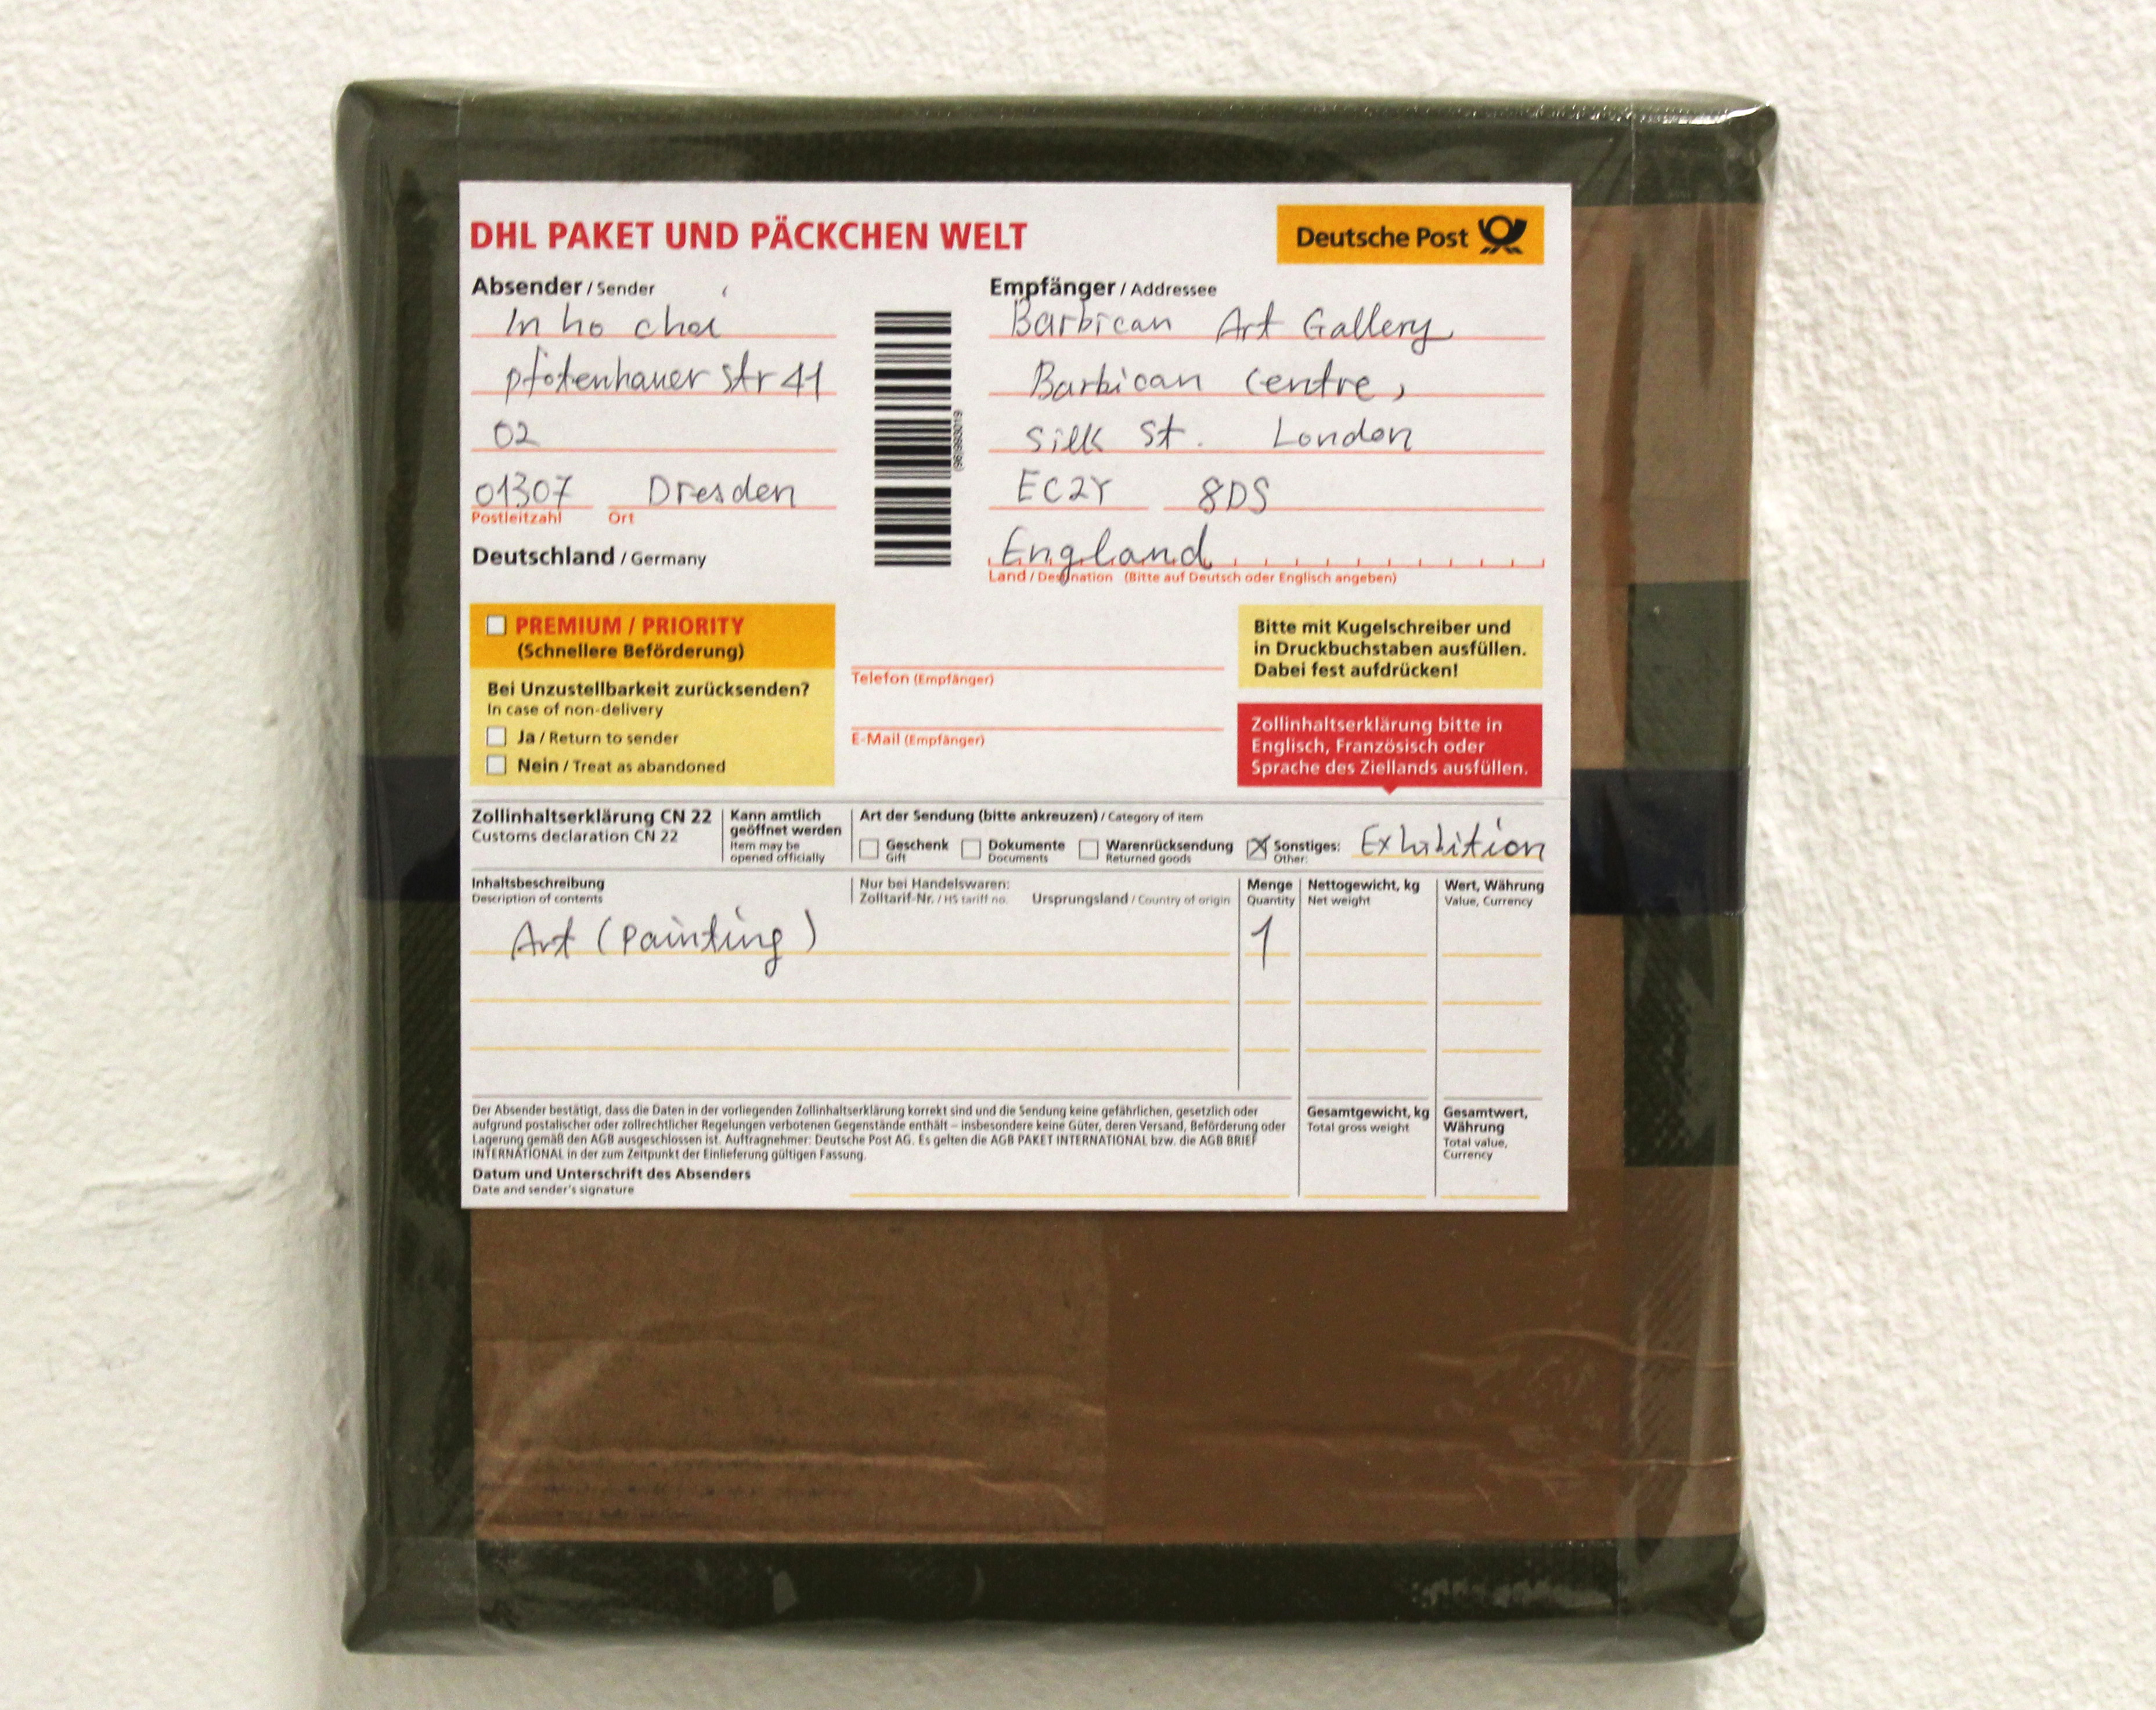 DHL PAKET UND PÄCKCHEN WELT
Deutsche Post
Absender / Sender
In ho choi
pfotenhauer str 41
02
01307 Dresden
Postleitzahl Ort
Deutschland / Germany
Empfänger / Addressee
Barbican Art Gallery
Barbican Centre,
Silk St. London
EC2Y 8DS
England
Land / Destination (Bitte auf Deutsch oder Englisch angeben)
PREMIUM / PRIORITY
(Schnellere Beförderung)
Bei Unzustellbarkeit zurücksenden?
In case of non-delivery
Ja / Return to sender
Nein / Treat as abandoned
Telefon (Empfänger)
E-Mail (Empfänger)
Bitte mit Kugelschreiber und
in Druckbuchstaben ausfüllen.
Dabei fest aufdrücken!
Zollinhaltserklärung bitte in
Englisch, Französisch oder
Sprache des Ziellands ausfüllen.
Zollinhaltserklärung CN 22
Customs declaration CN 22
Kann amtlich
geöffnet werden
Item may be
opened officially
Art der Sendung (bitte ankreuzen) / Category of item
Geschenk
Gift
Dokumente
Documents
Warenrücksendung
Returned goods
Sonstiges:
Other:
Exhibition
Inhaltsbeschreibung
Description of contents
Nur bei Handelswaren:
Zolltarif-Nr. / HS tariff no. Ursprungsland / Country of origin
Menge
Quantity
Nettogewicht, kg
Net weight
Wert, Währung
Value, Currency
Art (Painting) 1
Der Absender bestätigt, dass die Daten in der vorliegenden Zollinhaltserklärung korrekt sind und die Sendung keine gefährlichen, gesetzlich oder
aufgrund postalischer oder zollrechtlicher Regelungen verbotenen Gegenstände enthält – insbesondere keine Güter, deren Versand, Beförderung oder
Lagerung gemäß den AGB ausgeschlossen ist. Auftragnehmer: Deutsche Post AG. Es gelten die AGB PAKET INTERNATIONAL bzw. die AGB BRIEF
INTERNATIONAL in der zum Zeitpunkt der Einlieferung gültigen Fassung.
Datum und Unterschrift des Absenders
Date and sender's signature
Gesamtgewicht, kg
Total gross weight
Gesamtwert,
Währung
Total value,
Currency